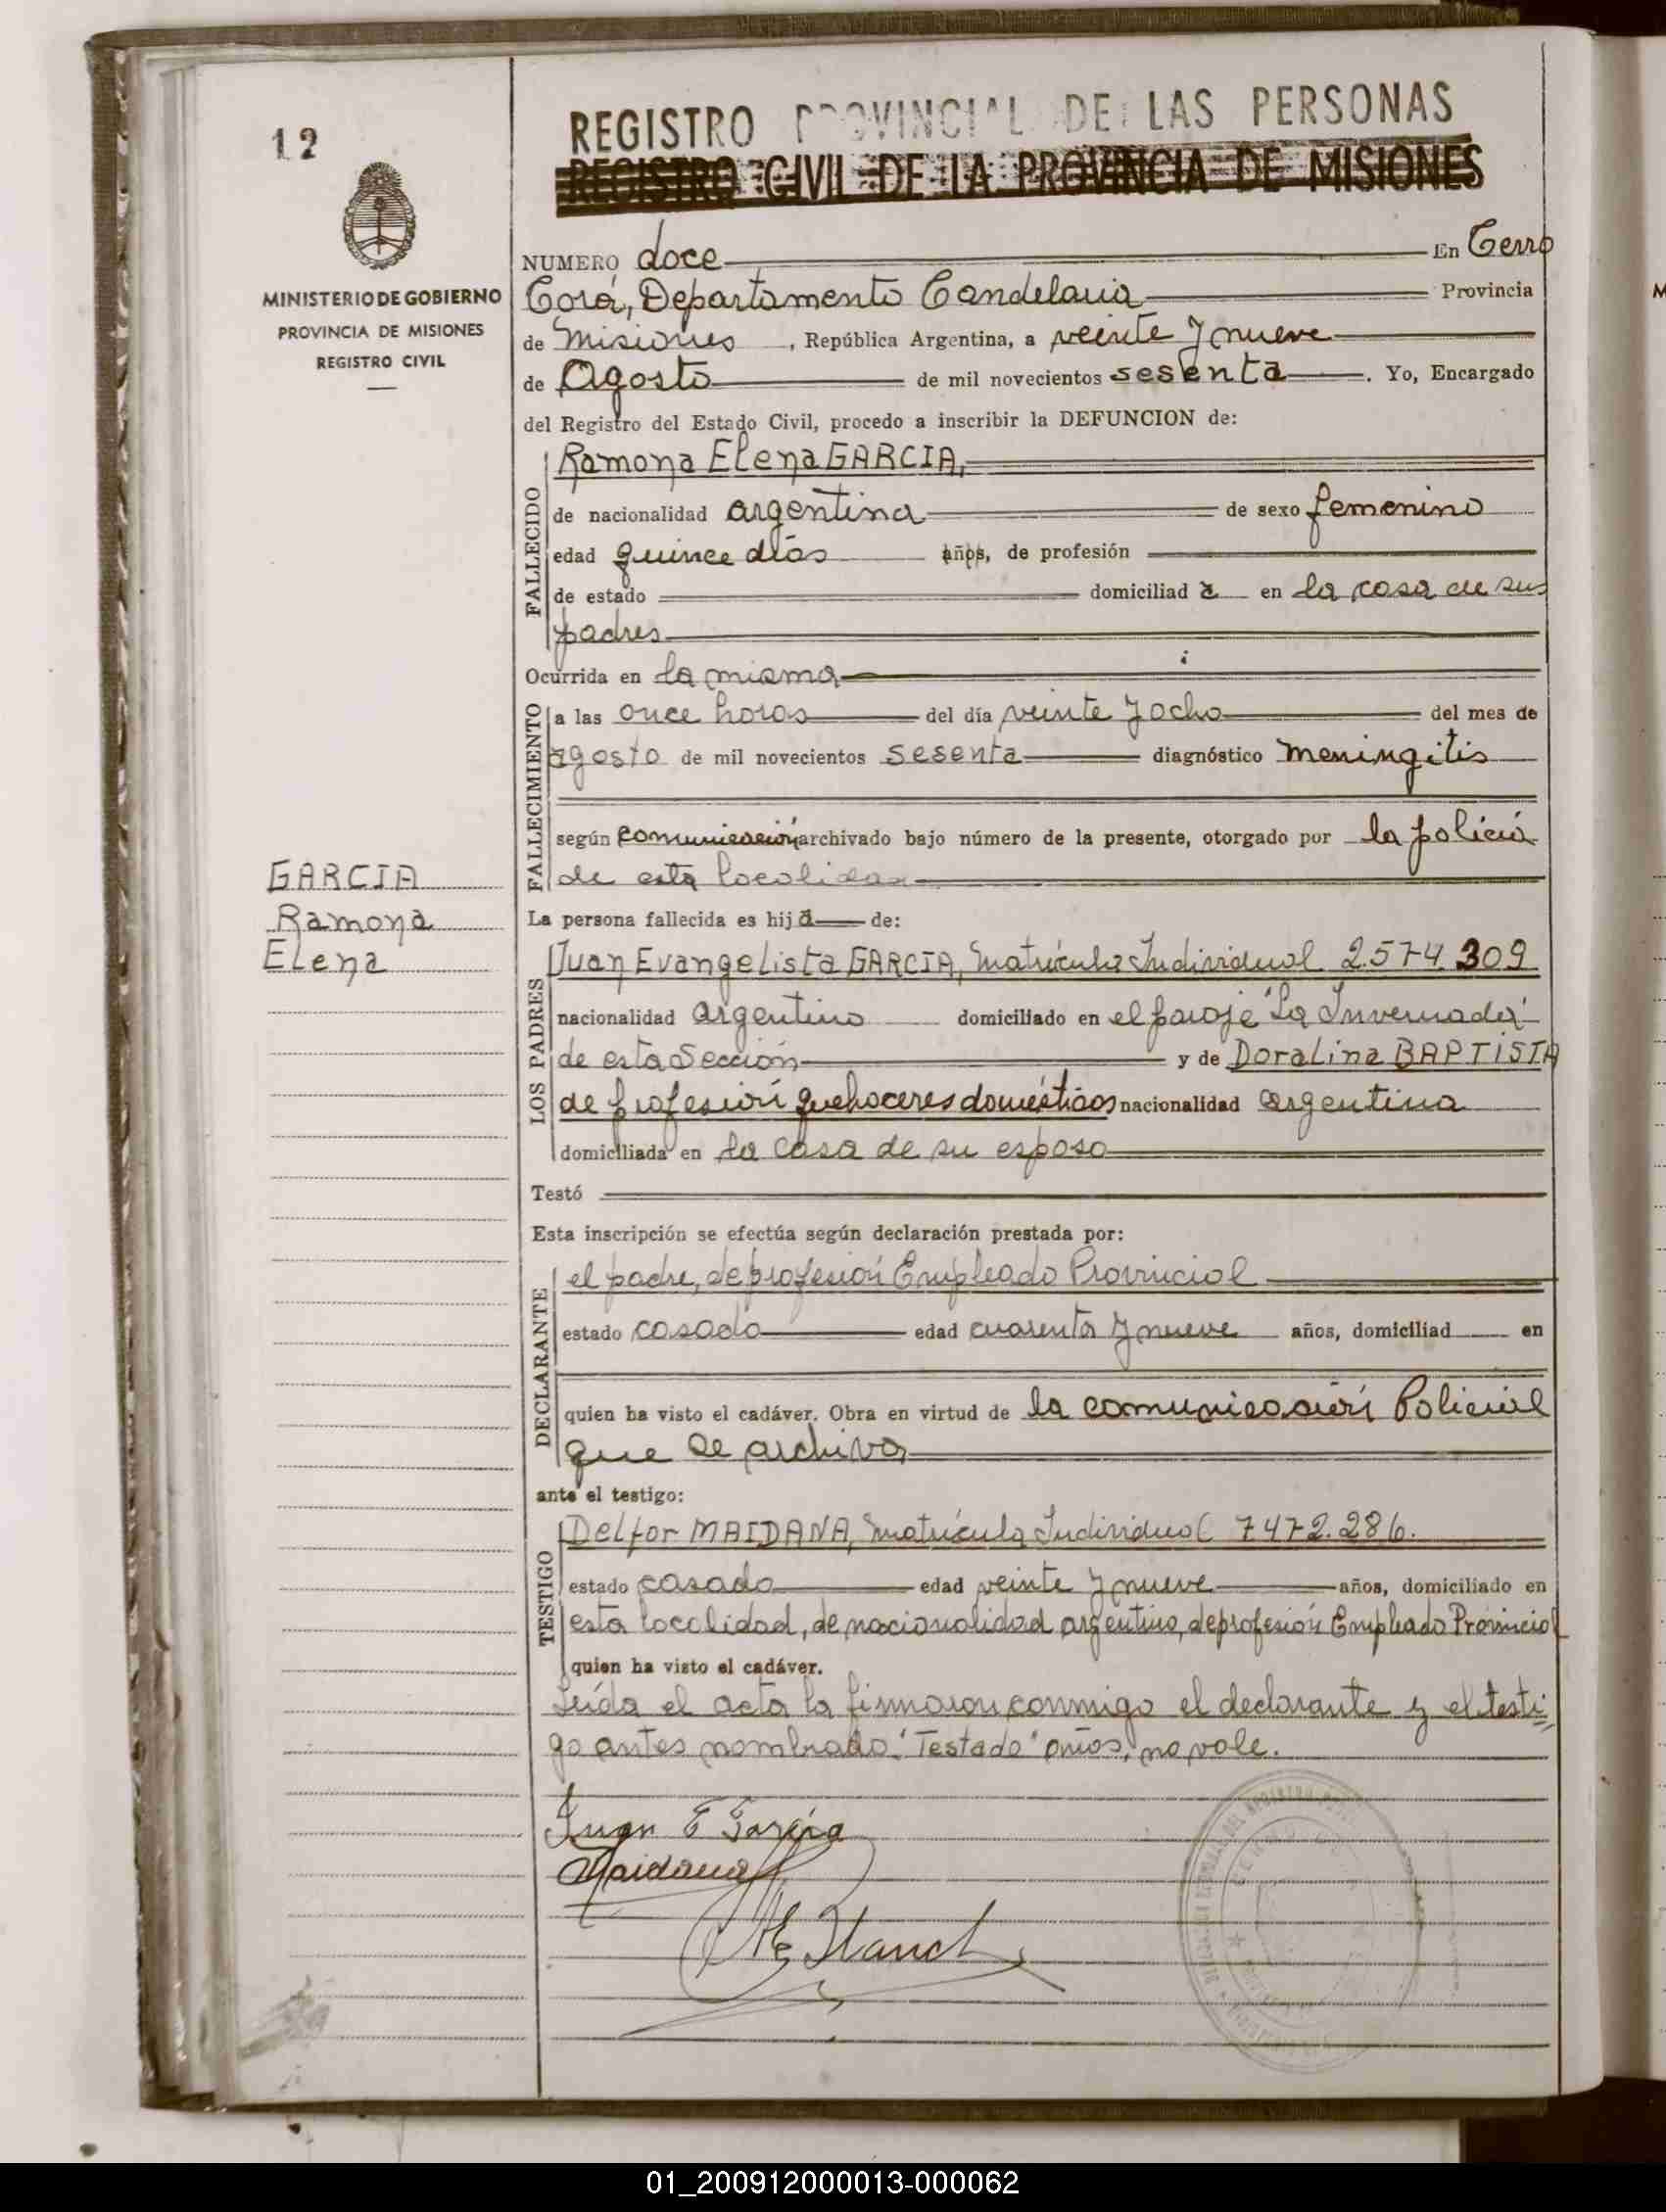 12
MINISTERIO DE GOBIERNO
PROVINCIA DE MISIONES
REGISTRO CIVIL
REGISTRO PROVINCIAL DE LAS PERSONAS
REGISTRO CIVIL DE LA PROVINCIA DE MISIONES
NUMERO doce En Cerro
Corá, Departamento Candelaria Provincia
de Misiones, República Argentina, a veinte y nueve
de Agosto de mil novecientos sesenta. Yo, Encargado
del Registro del Estado Civil, procedo a inscribir la DEFUNCION de:
FALLECIDO
Ramona Elena GARCIA,
de nacionalidad argentina de sexo femenino
edad quince días años, de profesión
de estado domiciliad a en la casa de sus
padres
Ocurrida en la misma
FALLECIMIENTO
a las once horas del día veinte y ocho del mes de
agosto de mil novecientos sesenta diagnóstico meningitis
según comunicación archivado bajo número de la presente, otorgado por la policía
de esta localidad
GARCIA
Ramona
Elena
La persona fallecida es hija de:
LOS PADRES
Juan Evangelista GARCIA, Matrícula Individual 2.574.309
nacionalidad argentino domiciliado en el paraje "La Invernada"
de esta Sección y de Doralina BAPTISTA
de profesión quehaceres domésticos nacionalidad argentina
domiciliada en la casa de su esposo
Testó
Esta inscripción se efectúa según declaración prestada por:
DECLARANTE
el padre, de profesión Empleado Provincial
estado casado edad cuarenta y nueve años, domiciliad en
quien ha visto el cadáver. Obra en virtud de la comunicación Policial
que se archiva
ante el testigo:
TESTIGO
Delfor MAIDANA, Matrícula Individual 7472.286.
estado casado edad veinte y nueve años, domiciliado en
esta localidad, de nacionalidad argentino, de profesión Empleado Provincial
quien ha visto el cadáver.
Leída el acta la firmaron conmigo el declarante y el testi
go antes nombrado. "Testado" años, no vale.
Juan E García
Maidana
01_200912000013-000062